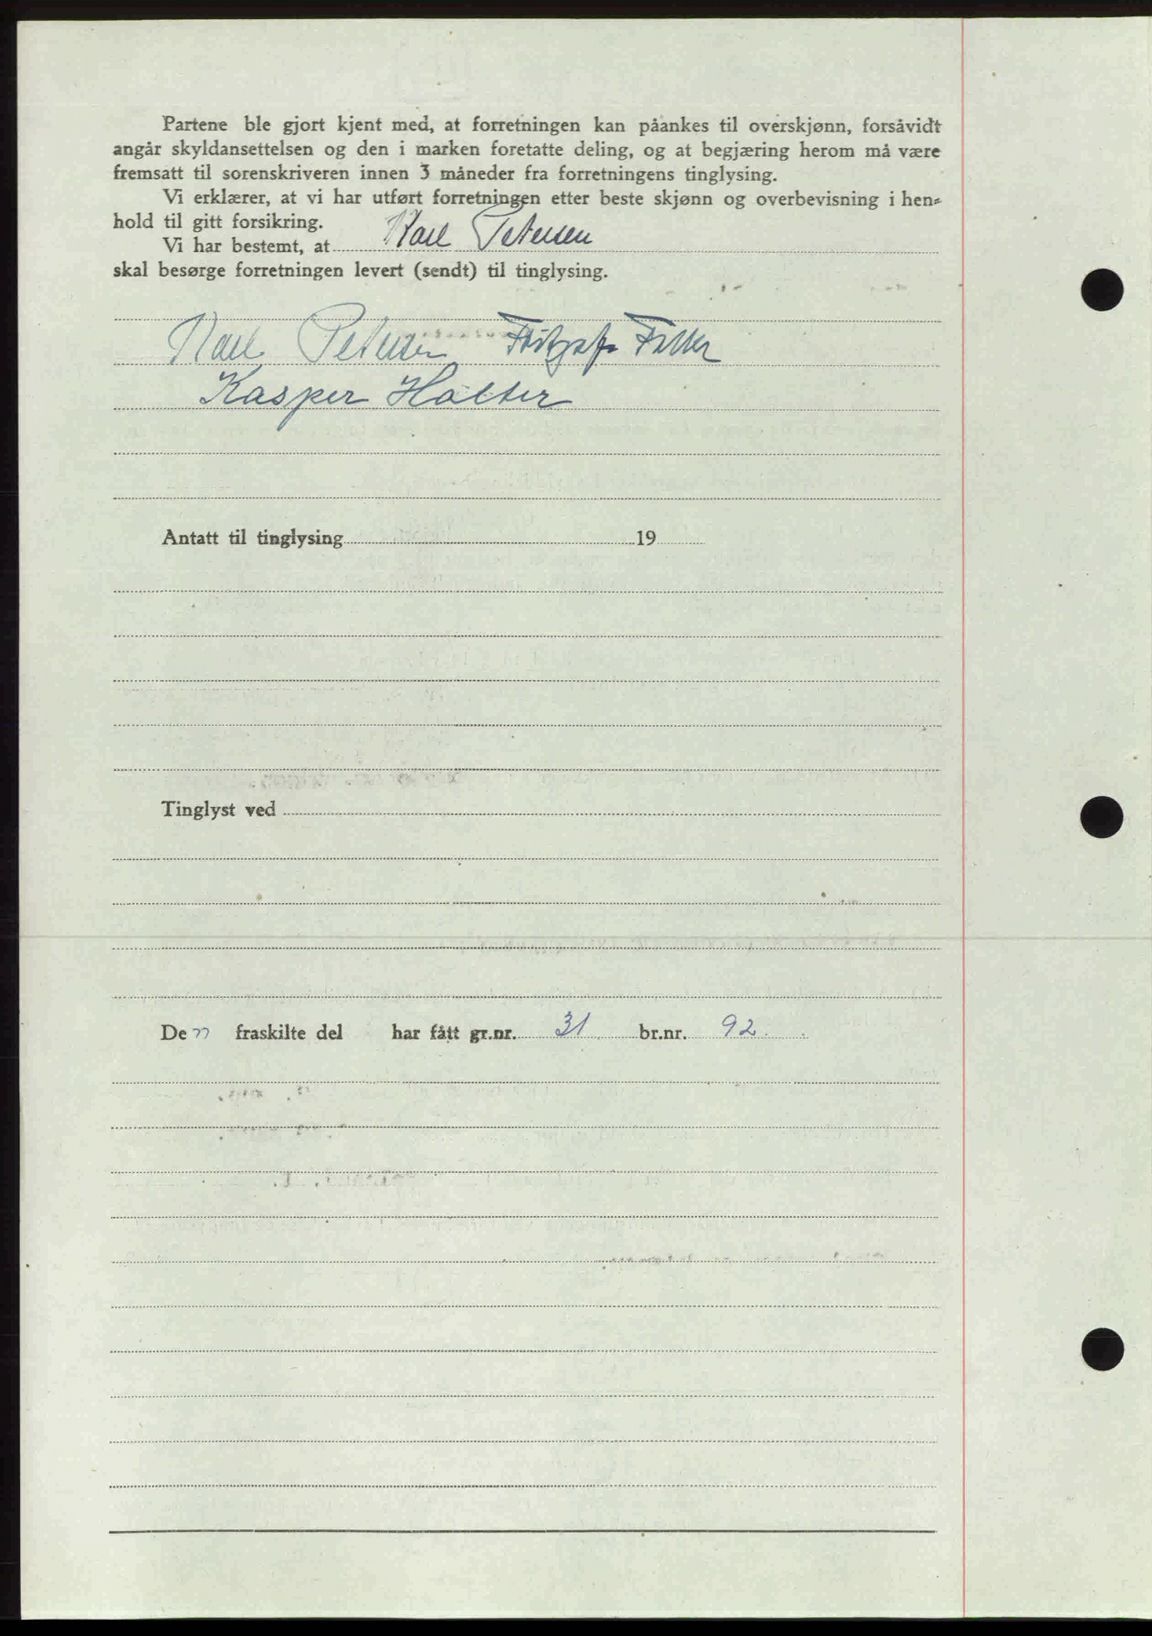 Partene ble gjort kjent med, at forretningen kan påankes til overskjønn, forsåvidt
angår skyldansettelsen og den i marken foretatte deling, og at begjæring herom må være
fremsatt til sorenskriveren innen 3 måneder fra forretningens tinglysing.
Vi erklærer, at vi har utført forretningen etter beste skjønn og overbevisning i hen-
hold til gitt forsikring.
Vi har bestemt, at Karl Petersen
skal besørge forretningen levert (sendt) til tinglysing.
Karl Petersen
Kasper Halter
Antatt til tinglysing 19
Tinglyst ved
De nn fraskilte del har fått gr.nr. 31 br.nr. 92